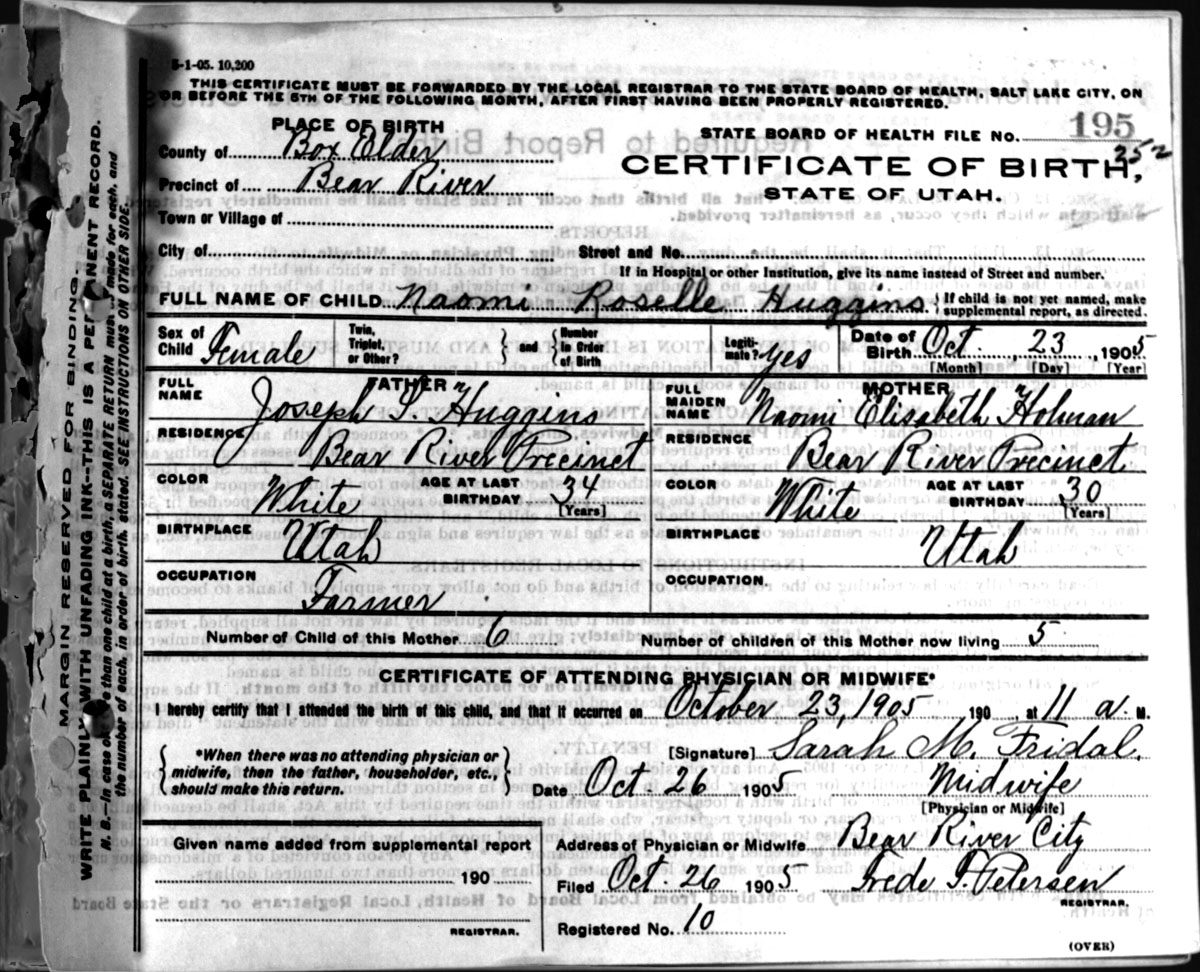 5-1-05. 10,200
THIS CERTIFICATE MUST BE FORWARDED BY THE LOCAL REGISTRAR TO THE STATE BOARD OF HEALTH, SALT LAKE CITY, ON
OR BEFORE THE 5TH OF THE FOLLOWING MONTH, AFTER FIRST HAVING BEEN PROPERLY REGISTERED.
PLACE OF BIRTH
STATE BOARD OF HEALTH FILE NO. 195
252
County of Box Elder
CERTIFICATE OF BIRTH,
Precinct of Bear River
STATE OF UTAH.
Town or Village of
City of Street and No.
If in Hospital or other Institution, give its name instead of Street and number.
FULL NAME OF CHILD Naomi Roselle Huggins {If child is not yet named, make
supplemental report, as directed.
Sex of Child Female Twin, Triplet, or Other? } and { Number In Order of Birth Legiti-mate? yes Date of Birth Oct. 23 1905
[Month] [Day] [Year]
FATHER
FULL NAME Joseph S. Huggins
MOTHER
FULL MAIDEN NAME Naomi Elisabeth Holman
RESIDENCE Bear River Precinct
RESIDENCE Bear River Precinct
COLOR White AGE AT LAST BIRTHDAY 34 [Years]
COLOR White AGE AT LAST BIRTHDAY 30 [Years]
BIRTHPLACE Utah
BIRTHPLACE Utah
OCCUPATION Farmer
OCCUPATION.
Number of Child of this Mother 6 Number of children of this Mother now living 5
CERTIFICATE OF ATTENDING PHYSICIAN OR MIDWIFE*
I hereby certify that I attended the birth of this child, and that it occurred on October 23, 1905 190 , at 11 a. M.
{*When there was no attending physician or
midwife, then the father, householder, etc.,
should make this return.}
[Signature] Sarah M. Fridal.
Date Oct. 26 1905 Midwife
[Physician or Midwife]
Given name added from supplemental report
190
REGISTRAR.
Address of Physician or Midwife Bear River City
Filed Oct. 26 1905 Frede F. Petersen
REGISTRAR.
Registered No. 10
(OVER)
MARGIN RESERVED FOR BINDING.
WRITE PLAINLY WITH UNFADING INK--THIS IS A PERMANENT RECORD.
N. B.--In case of more than one child at a birth, a SEPARATE RETURN must be made for each, and
the number of each, in order of birth, stated. SEE INSTRUCTIONS ON OTHER SIDE.